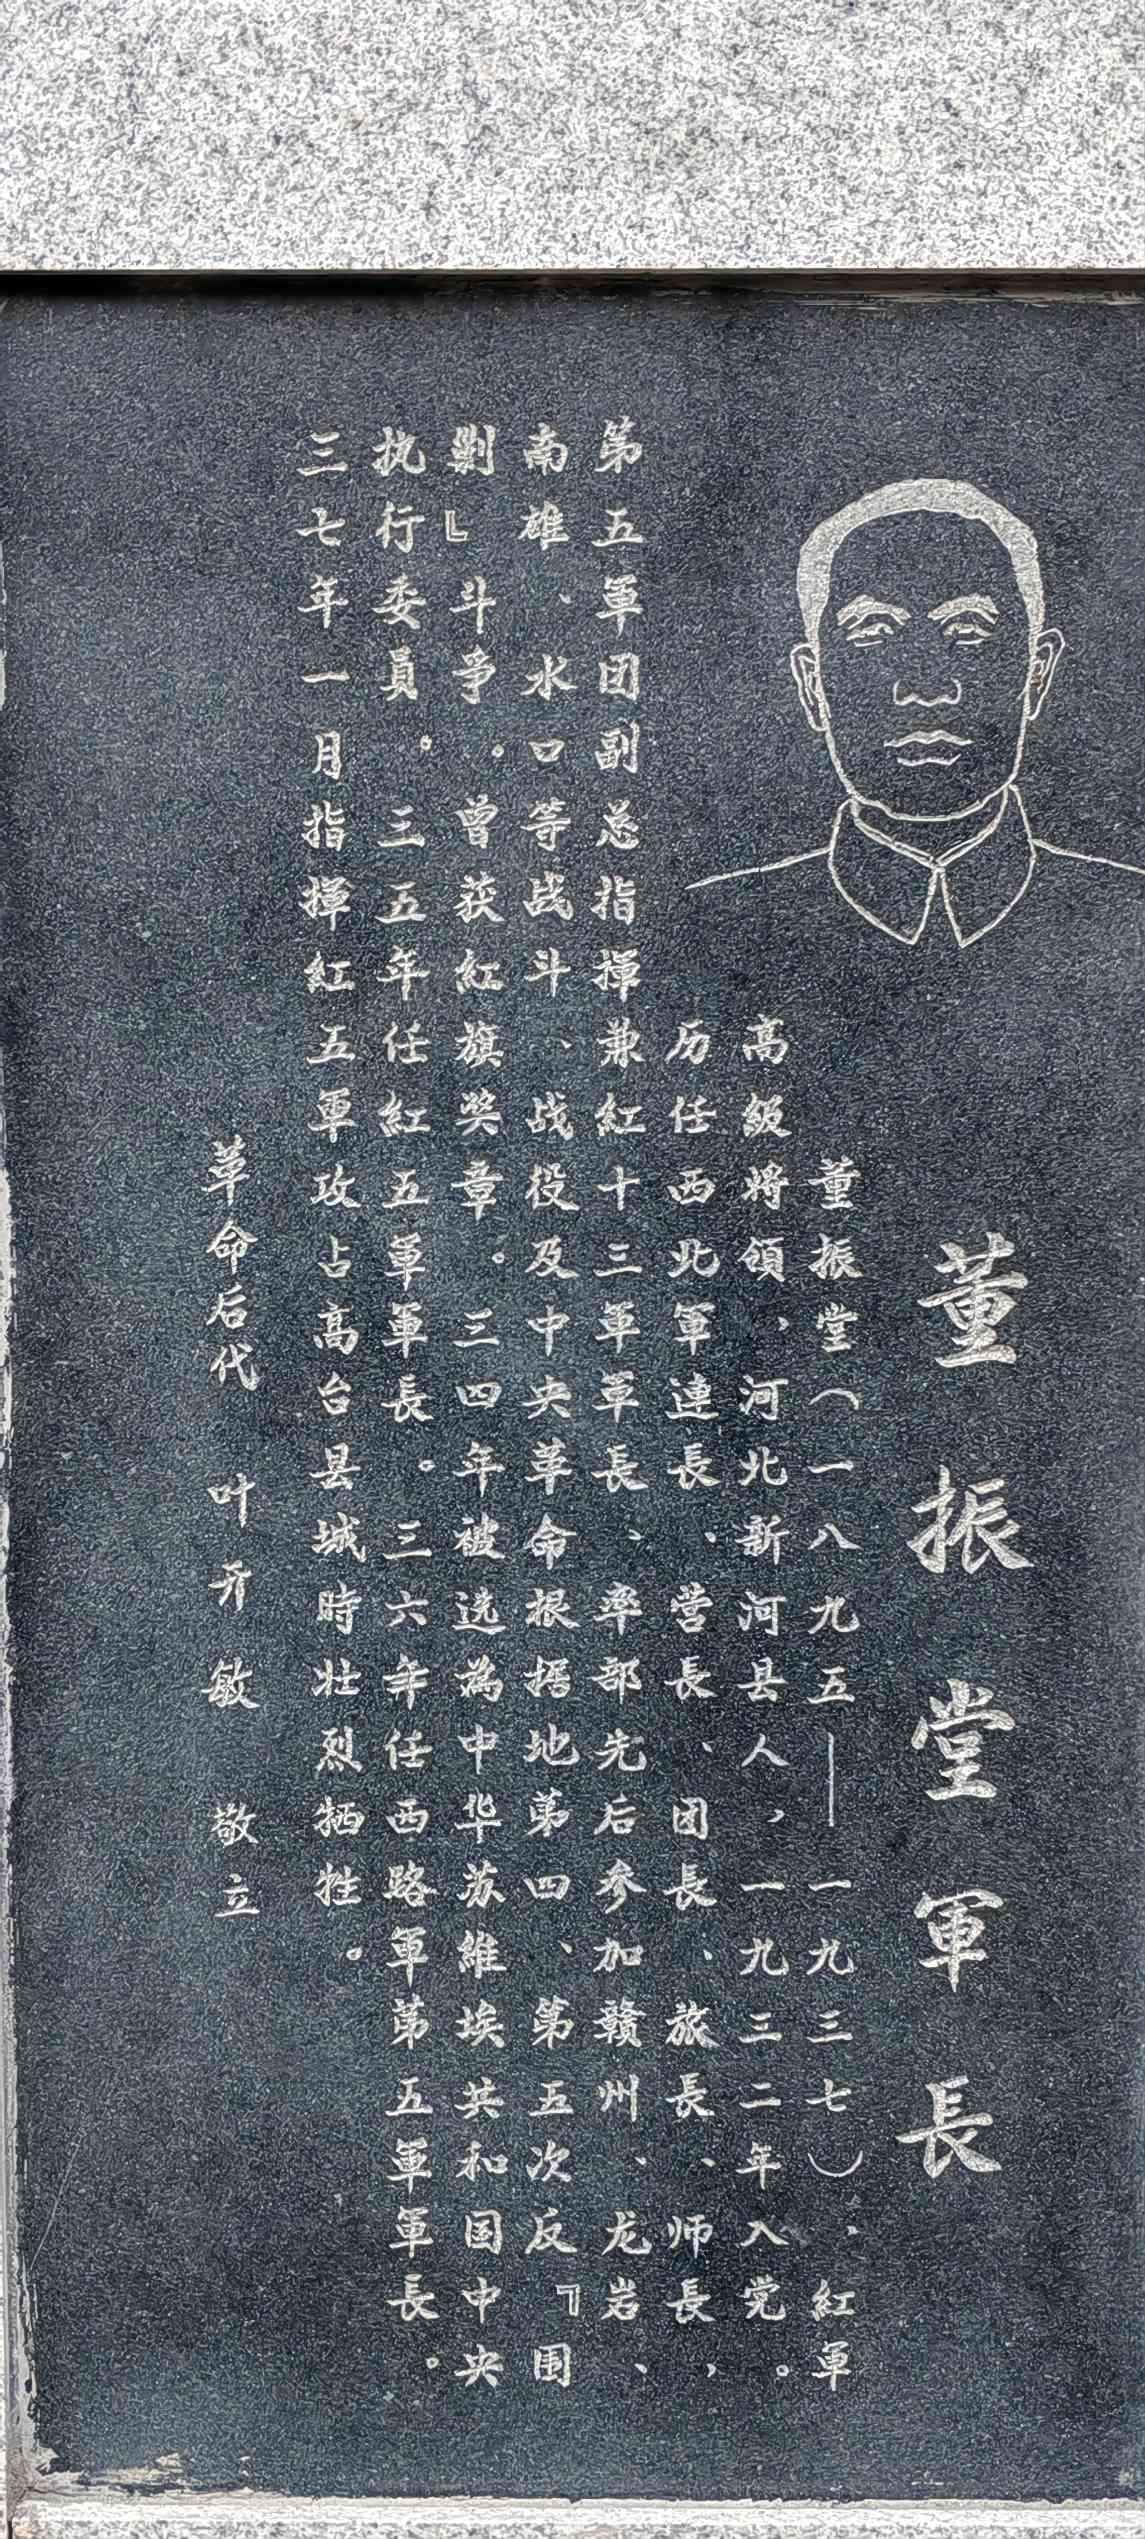 董振堂軍長
董振堂（一八九五——一九三七）、紅軍
高級将領、河北新河县人，一九三二年入党。
历任西北軍連長、营長、团長、旅長、师長，
第五軍团副总指揮兼紅十三軍軍長、率部先后参加赣州、龙岩、
南雄、水口等战斗、战役及中央革命根据地第四、第五次反『围
剿』斗争。曾获紅旗奖章。三四年被选為中华苏維埃共和国中央
执行委員。三五年任紅五軍軍長。三六年任西路軍第五軍軍長。
三七年一月指揮紅五軍攻占高台县城時壮烈牺牲。
革命后代 叶齐敏 敬立